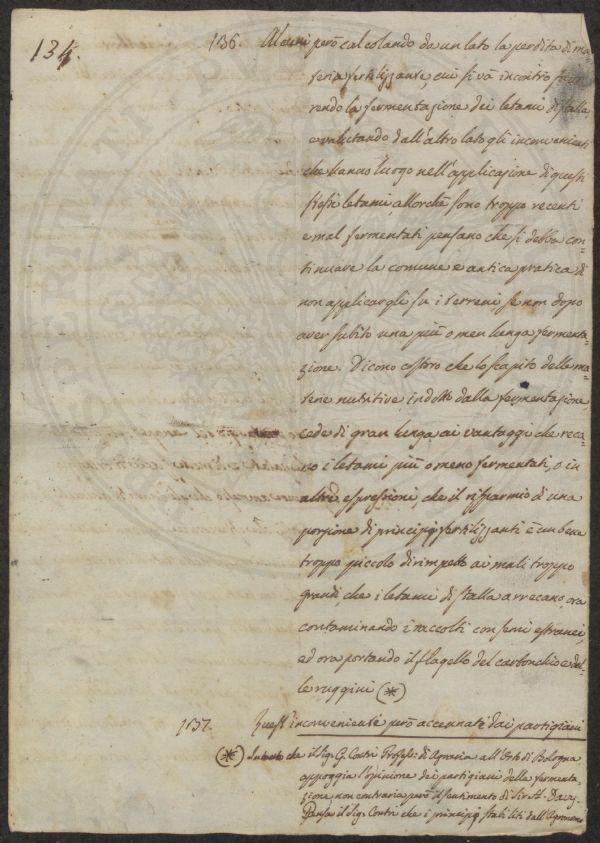 134.
136. Alcuni però calcolando da un lato la perdita di ma=
teria fertilizzante, cui si và incontro
rendo la fermentazione dei letami di stalla,
e valutando dall'altro lato gli inconvenienti
che hanno luogo nell'applicazione di questi
stessi letami, allorchè sono troppo recenti
e mal fermentati pensano che si debba con=
tinuare la comune e antica pratica di
non applicargli su i terreni, se non dopo
aver subito una più o men lunga fermenta=
zione. Dicono costoro che lo scapito delle ma=
terie nutritive indotto dalla fermentazione,
cede di gran lunga ai vantaggi che reca=
no i letami più o meno fermentati, o in
altre espressioni, che il risparmio di una
porzione di principj fertilizzanti è un bene
troppo piccolo dirimpetto ai mali troppo
grandi, che i letami di stalla arrecano, ora
contaminando i raccolti con semi estranei,
ed ora portando il flagello del carbonchio e del=
le ruggini (*)
137. Quest' inconveniente però accennate dai partigiani
(*) che il Sig. G. Contri Profess: di Agraria all'Orto di Bologna
appoggia l'opinione dei partigiani della fermenta=
zione, non contraria però il sentimento di Sir H. Davy.
Pensa il Sig. Contri che i principj stabiliti dall'Agronomo